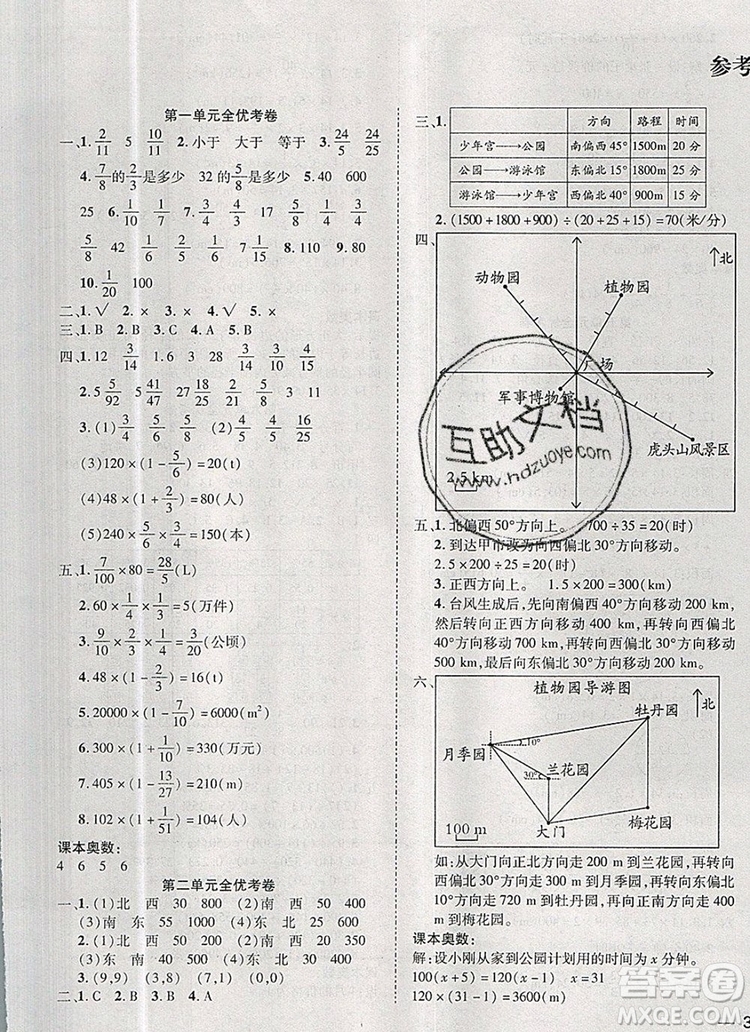 参考
第一单元全优考卷
一、1. 2/11 5 10/11 2.小于 大于 等于 3. 24/25 24/25
4. 7/8的是多少 32的5/8是多少 5.40 600
25 6. 1/4 3/4 1/4 3/4 7. 1/4 3/8
5/8 42 1/6 1/3 1/6 8.110 9.80
10. 1/20 100
二、1.√ 2.× × 3.× 4.√ 5.×
三、1.B 2.B 3.C 4.A 5.B
四、1.12 3/14 1.6 3 28 3/14
2. 5/92 5/47 27 18/25 5/21 3/10
3.(1)120×(1-5/6)
(3)120×(1-5/6)
(4)48×(1+2/3)=80(人)
(5)240×5/6×3/4=150(本)
五、1. 7/100×80=28/5(L)
2.60×1/4×1/3=5(万件)
3. 9/10×2/3×1/4
4.80×(1-3/8)
5.20000×(1-7/10)=6000(m²)
6.300×(1+1/10)=330(万元)
7.405×(1-13/27)=210(m)
8.102×(1+1/51)=104(人)
课本奥数:
4 6 5 6
第二单元全优考卷
一、1.(1)北 西 30 800 (2)南 西 50 400
(3)南 东 55 1000 (4)东 北 25 600
2.(1)西 北 45 200 (2)西 南 50 350
(3)东 南 30 400 (4)东 北 50 400
3.(9,9) (3,2)
二、1.C 2.A 3.B 4.C
三、1.
方向 路程 时间
少年宫→公园 南偏西45° 1500m 20分
公园→游泳馆 东偏北15° 1800m 25分
游泳馆→少年宫 西偏北40° 900m 15分
2.(1500+1800+900)÷(20+25+15)=70(米/分)
四、
北
动物园
植物园
广场
军事博物馆
虎头山风景区
2.5 km
互助文档
www.hdzuoye.com
五、1.北偏西50°方向上。 700÷35=20(时)
2.到达甲市改为向西偏北30°方向移动。
2.5×200÷25=20(时)
3.正西方向上。 1.5×200=300(km)
4.台风生成后,先向南偏西40°方向移动200 km,
然后转向正西方向移动400 km,再转向西偏北
40°方向移动700 km,再转向西偏北30°方向移动
500 km,最后向东偏北30°方向移动400 km。
六、
植物园导游图
北
牡丹园
月季园
10°
30°
兰花园
大门
梅花园
100 m
如:从大门向正北方向走200 m到兰花园,再转向
西偏北30°方向走250 m到月季园,再转向东偏北
10°方向走600 m到牡丹园,再转向正南方向走
450 m到梅花园。
课本奥数:
解:设小刚从家到公园计划用的时间为x分钟。
100(x+5)=120(x-1) x=31
120×(31-1)=3600(m)
3
答案圈
MXQE.COM